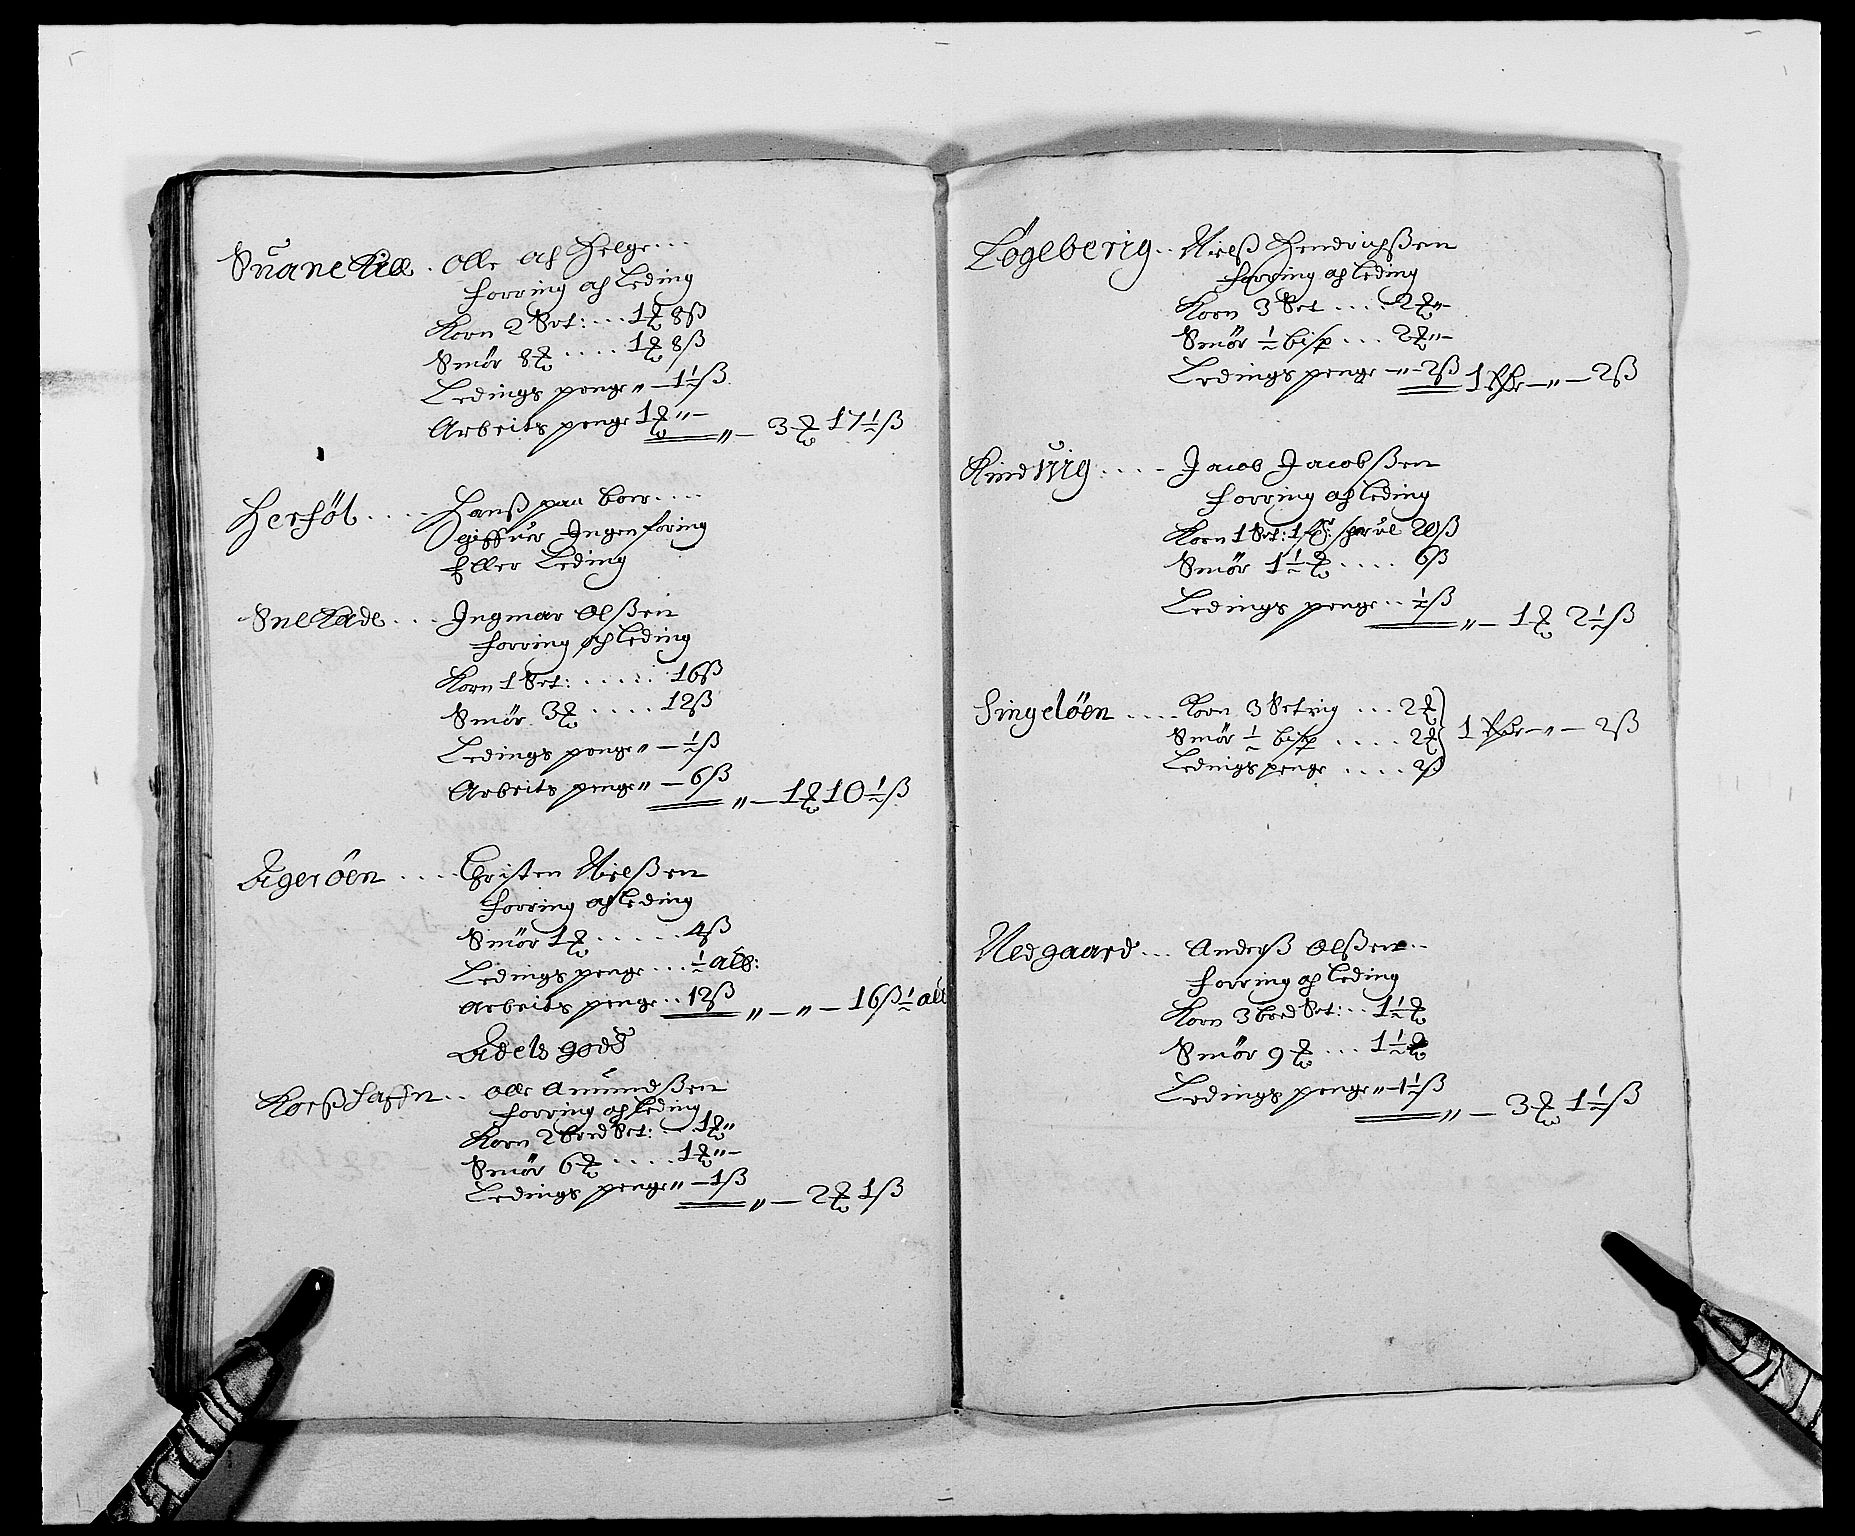 Suanekill . Olle och Helge ...
Forring och Leding
Korn 2 Set: ... 1 ℔ 8 ß
Smör 8 ℔ .... 1 ℔ 8 ß
Ledings penge „ — 1½ ß
Arbeits penge 1 ℔ „ — „ — 3 ℔ 17½ ß
Herföl .... Hanß paa boer ....
giffuer Ingen foring
Eller Leding
Snekade ... Ingmar Olßen
Forring och Leding
Korn 1 Set: ..... 16 ß
Smör 3 ℔ .... 12 ß
Ledings penge „ — ½ ß
Arbeits penge „ — 6 ß „ — 1 ℔ 10½ ß
Ageröen .... Christen Nielßen
Forring och leding
Smör 1 ℔ ..... 4 ß
Ledings penge ... ½ alb:
Arbeits penge .. 12 ß „ — „ — 16 ß ½ alb
Adels godß
Korßhaffn .. Olle Amundßen
Forring och leding
Korn 2 bred Set: ... 1 ℔ „
Smör 6 ℔ .... 1 ℔ „ —
Ledings penge „ — 1 ß „ — 2 ℔ 1 ß
Løgeberig .. Nielß Hendrichßen
Forring och leding
Korn 3 Set .... 2 ℔ „ —
Smör ½ bisp ... 2 ℔ „ —
Ledings penge — „ — 2 ß 1 Rdr — „ — 2 ß
Kindvig .... Jacob Jacobßen
Forring och leding
Korn 1 Set: 1 20 ß
Smör 1½ ℔ .... 6 ß
Ledings penge .. ½ ß „ — 1 ℔ 2½ ß
Singelöen .... Korn 3 Setvig ... 2 ℔
Smör ½ bisp .... 2 ℔ 1 Rdr — „ — 2 ß
Ledings penge .... 2 ß
Nedgaard ... Anderß Olßen ..
Forring och leding
Korn 3 bred Set: .. 1½ ℔
Smör 9 ℔ ... 1½ ℔
Ledings penge „ — 1½ ß „ — 3 ℔ 1½ ß